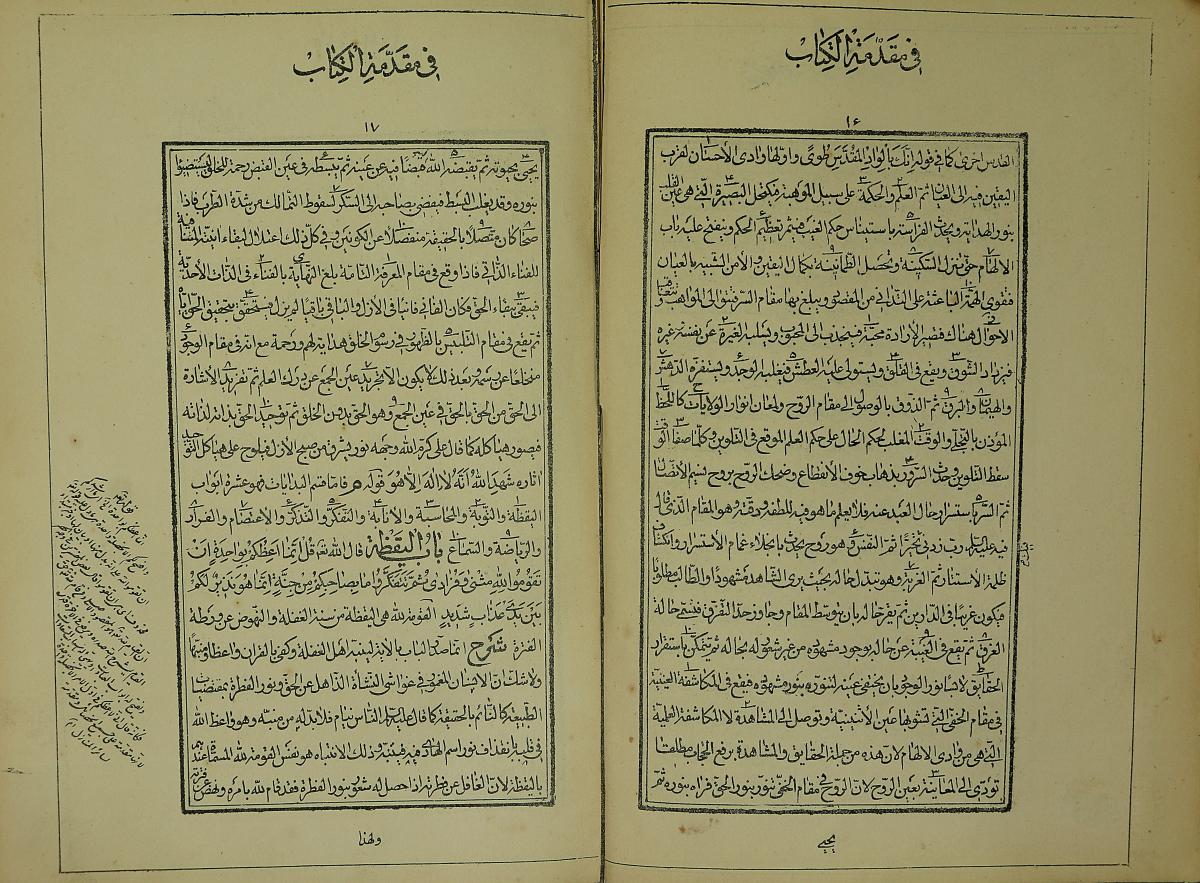 في مقدمة الكتاب
١٦
القدس اخرى كما في قوله انك بالواد المقدس طوى واولها وادى الاحسان لقرب
اليقين فيه الى العيان ثم العلم والحكمة على سبيل الموهبة فيكتحل البصيرة التي هي عين القلب
بنور الهداية ويحدث الفراسة باستيناس حكم الغيب فيثمر تعظيم الحكم وينفتح عليه باب
الالهام حتى ينزل السكينة وتحصل الطمأنينة بكمال اليقين والامن الشبيه بالعيان
فتقوى الهمة الباعثة على التدانى من المقصود ويبلغ بها مقام السر فيترقى الى المواهب
الاحوال هناك فتصير الارادة محبة فينجذب الى المحبوب ويسلبه الغيرة عن نفسه وغيره
فيزداد الشوق ويقع في القلق ويستولى عليه العطش فيغلبه الوجد ويستفزه الدهش
والهيمان والبرق ثم الذوق بالوصول الى مقام الروح ولمعان انوار الولايات كاللحظ
المؤذن بالتجلى والوقت المغلب لحكم الحال على حكم العلم الموقع في التلوين وكلما صفا الوقت
سقط التلوين وحدث السرور بذهاب خوف الانقطاع وضحك الروح بروح نسيم الاتصال
ثم السر باستسرار حال العبد عنه فلا يعلم ما هو فيه للطفه ودقته وهو المقام الذى قال
فيه عليه السلام رب زدنى تحيرا ثم النفس وهو روح يحدث بانجلاء غمام الاستسرار وانكشاف
ظلمة الاستتار ثم الغربة وهو تبدل حاله بحيث يرى الشاهد مشهودا والطالب مطلوبا
فيكون غريبا في الدارين ثم يغرق حاله بان يتوسط المقام وجاوز حد التفرق فيسمى حاله
الغرق ثم يقع في الغيبة عن حاله بوجود مشهوده من غير شعوره بحاله ثم يتمكن باستقرار
الحقايق لاحيا نور الوجود بان يختفى عينه لتنوره بنور مشهوده فيقع في المكاشفة العينية
في مقام الخفى التى تشوبها عين الاثنينية وتوصل الى المشاهدة لا المكاشفة العلمية
التى هي من وادى الالهام لان هذه من جملة الحقايق والمشاهدة برفع الحجاب مطلقا
تؤدى الى المعاينة بعين الروح لان الروح في مقام الخفى تنور بنور الحق فراه بنوره ثم
يحيى
في مقدمة الكتاب
١٧
يحيى بحيوته ثم يقبضه الله قبضا فيه عن عينه ثم يبسطه في عين القبض رحمة للخلق ليستضيئوا
بنوره وقد يغلب البسط فيفضى بصاحبه الى السكر لسقوط التمالك من شدة الطرب فاذا
صحا كان متصلا بالحقيقة منفصلا عن الكونين وفى كل ذلك اعتلال البقاء انيته المنافية
للفناء الذاتى فاذا وقع في مقام المعرفة التامة بلغ النهاية بالفناء في الذات الاحدية
فيبقى ببقاء الحق فكان الفانى فانيا في الازل والباقى باقيا لم يزل فيتحقق بتحقيق الحق اياه
ثم يقع في مقام التلبيس بالظهور في رسوم الخلق هداية لهم ورحمة مع انه في مقام الوجود
منخلعا عن رسمه وبعد ذلك لا يكون الا تجريد عين الجمع عن درك العلم ثم تفريد الاشارة
الى الحق من الحق بالحق في عين الجمع وهو الحق بدون الخلق ثم توحيد الحق بذاته لذاته
فيصور هيأكله كما قال على كرم الله وجهه نور يشرق من صبح الازل فيلوح على هياكل التوحيد
اثاره شهد الله انه لا اله الا هو قوله م فاما قسم البدايات فهو عشرة ابواب
اليقظة والتوبة والمحاسبة والانابة والتفكر والتذكر والاعتصام والفرار
والرياضة والسماع باب اليقظة قال الله تع قل انما اعظكم بواحدة ان
تقوموا لله مثنى وفرادى ثم تتفكروا ما بصاحبكم من جنة ان هو الا نذير لكم
بين يدى عذاب شديد القومة لله هى اليقظة من سنة الغفلة والنهوض عن ورطة
الفترة شرح انما صدر الباب بالاية لينبه اهل الغفلة وكفى بالقران واعظا ومنبها
ولا شك ان الانسان المغمور في غواشى النشأة الذاهل عن الحق ونور الفطرة بمقتضيات
الطبيعة كالنائم بالحقيقة كما قال عليه السلام الناس نيام فلا بد له من منبه وهو واعظ الله
في قلبه بانقذاف نور اسم الهادى فيه فينتبه وذلك الانتباه هو نفس القومة لله المسماة عندهم
باليقظة لان الغافل عن فطرته اذا حصل له شعور بنور الفطرة فقد قام لله بامره ونهض عن فترته
ولهذا